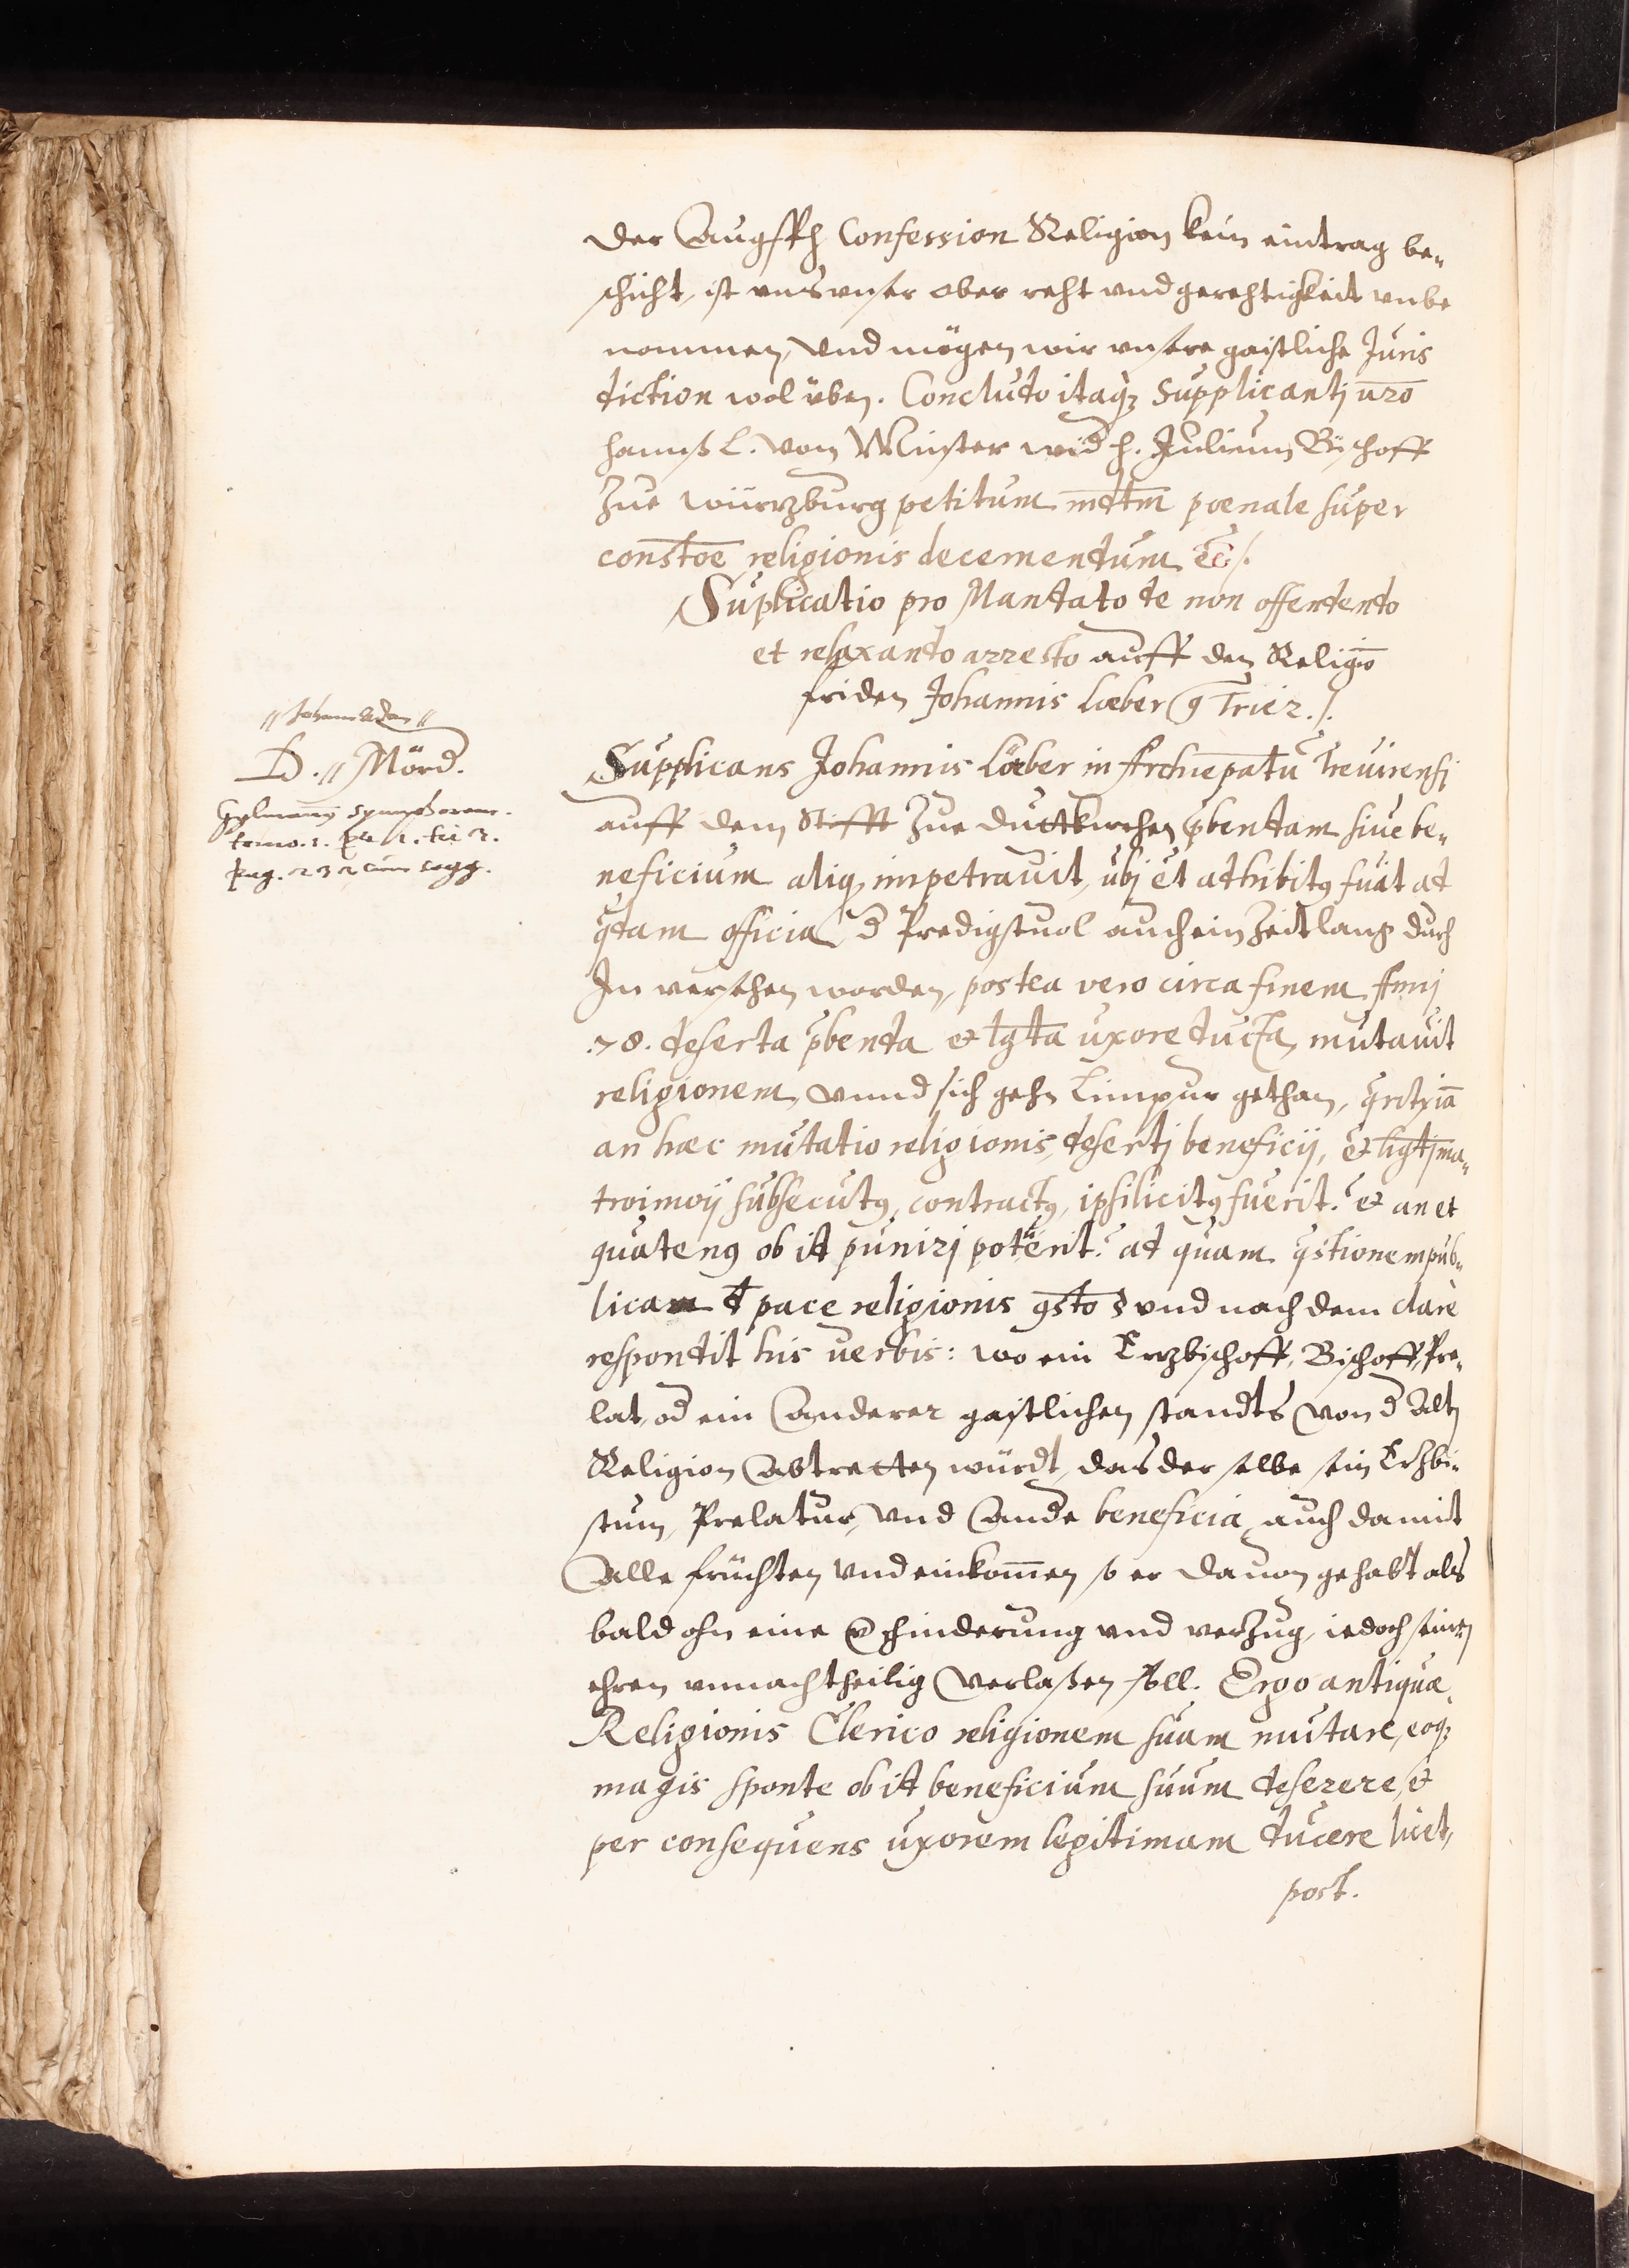 der Augsph Confession Religion kein eintrag be„
schicht, ist vns vnser ober reht vnd gerehtigkeit vnbe
nommen, vnd mögen wir vnsere gaistliche Juris
diction wol üben. Concludo itaq3 Supplicantj nr̄o
hannß L. von Münster wid h. Julium Bischoff
Zue würzburg petitum m̄dtm̄ poenale super
constōe religionis decernendum ec /.
Suplicatio pro Mandato de non offendendo
et relaxando arresto auff den Religiō
friden Johannis Lœber ꝯ Trier. /.
Supplicans Johannis Löeber in Archiep̄atu Treuirensj
auff dem Stifft Zue diettkirchen p̄bendam siue be„
neficium aliq impetrauit, ubj et adhibitꝯ fuit ad
q̄dam officia d̄ Predigstuol auch ein Zeit lang durch
In versehen worden, postea vero circa finem Annj
.78. deserta p̄benda et lḡta uxore ducta, mutauit
religionem, vnnd sich gehn Limpur gethan,
an hæc mutatio religionis, desertj beneficij, et ligtj ma„
trimoij subsecutꝯ contractꝯ, ipsi licitꝯ fuerit? et an et
quatenꝯ ob id punirj poterit? ad quam q̄stionem pub„
licam d̄ pace religionis ꝯsto § vnd nach dem clare
respondit his uerbis: wo ein Erzbischoff, Bischoff, Pre„
lat, od̄ ein Anderer gaistlichen standts von d̄ Altē
Religion Abtretten würdt, das der selbe sein Erzbi„
stum, Prelatur, vnd Ande beneficia auch damit
Alle früchten vnd einkom̄en so er dauon gehabt als
bald ohn eine v̄hinderung vnd verzug, iedoch seinē
ehren vnnachtheilig verlaßen soll. Ergo antiquæ
Religionis Clerico religionem suam mutare, eoq3
magis sponte ob id beneficium suum deserere, et
per consequens uxorem legitimam ducere licet,
post.
D. // Mörd.
Gylmann Symphorem.
tomo. 1. par. 1. tit 2.
pag. 232 cum seqq.